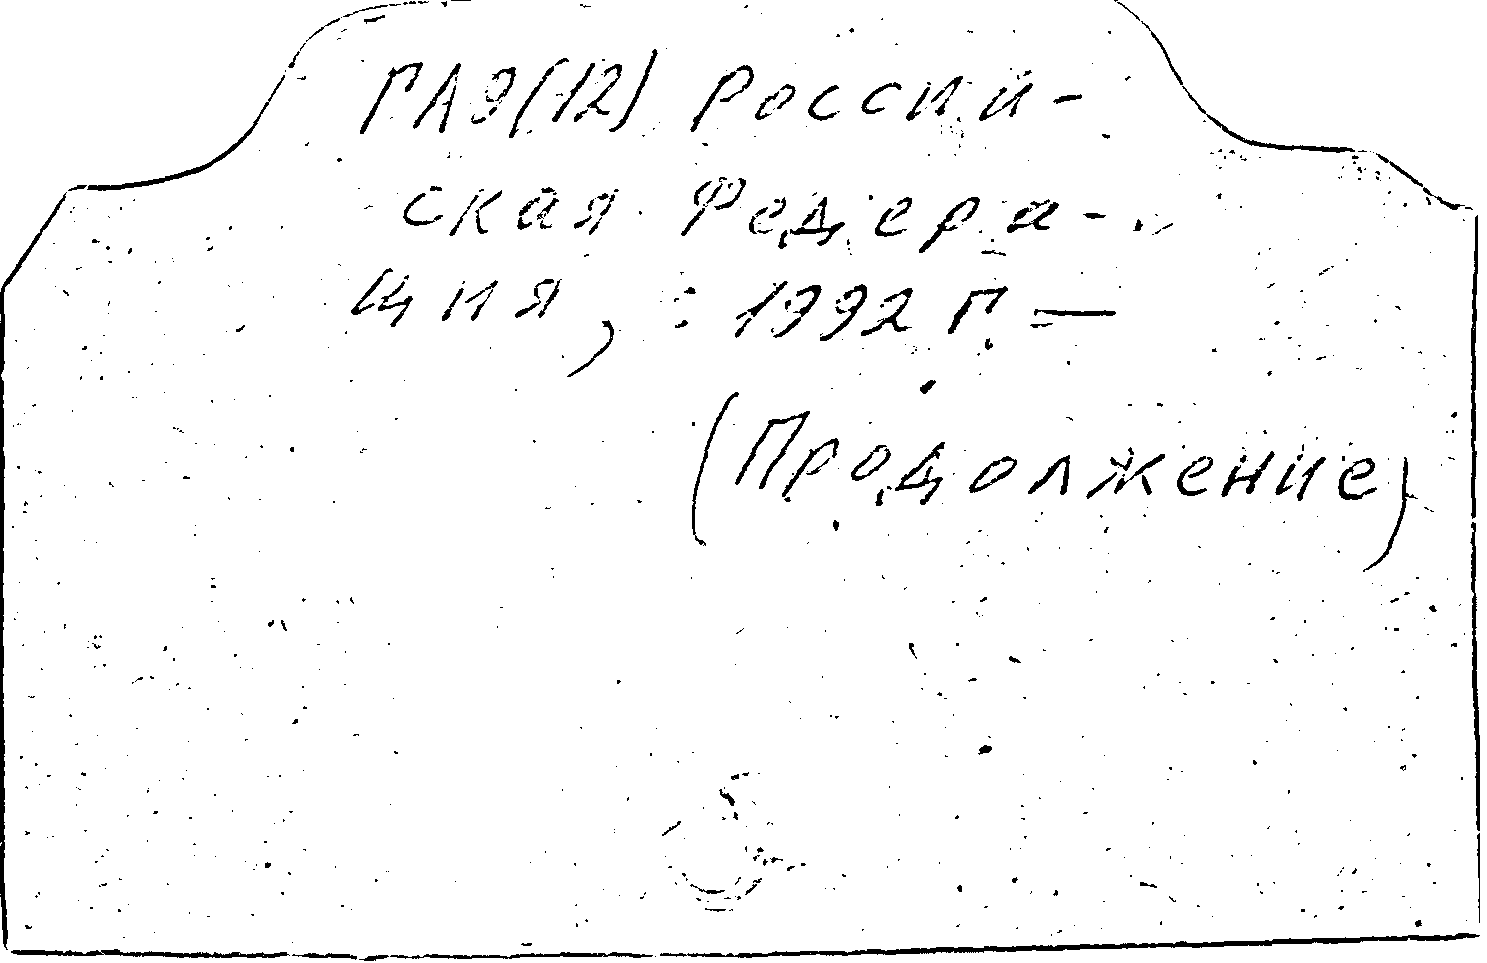 ГА9(12) Россий-
ская Федера-
ция, : 1992 г. —
(Продолжение)